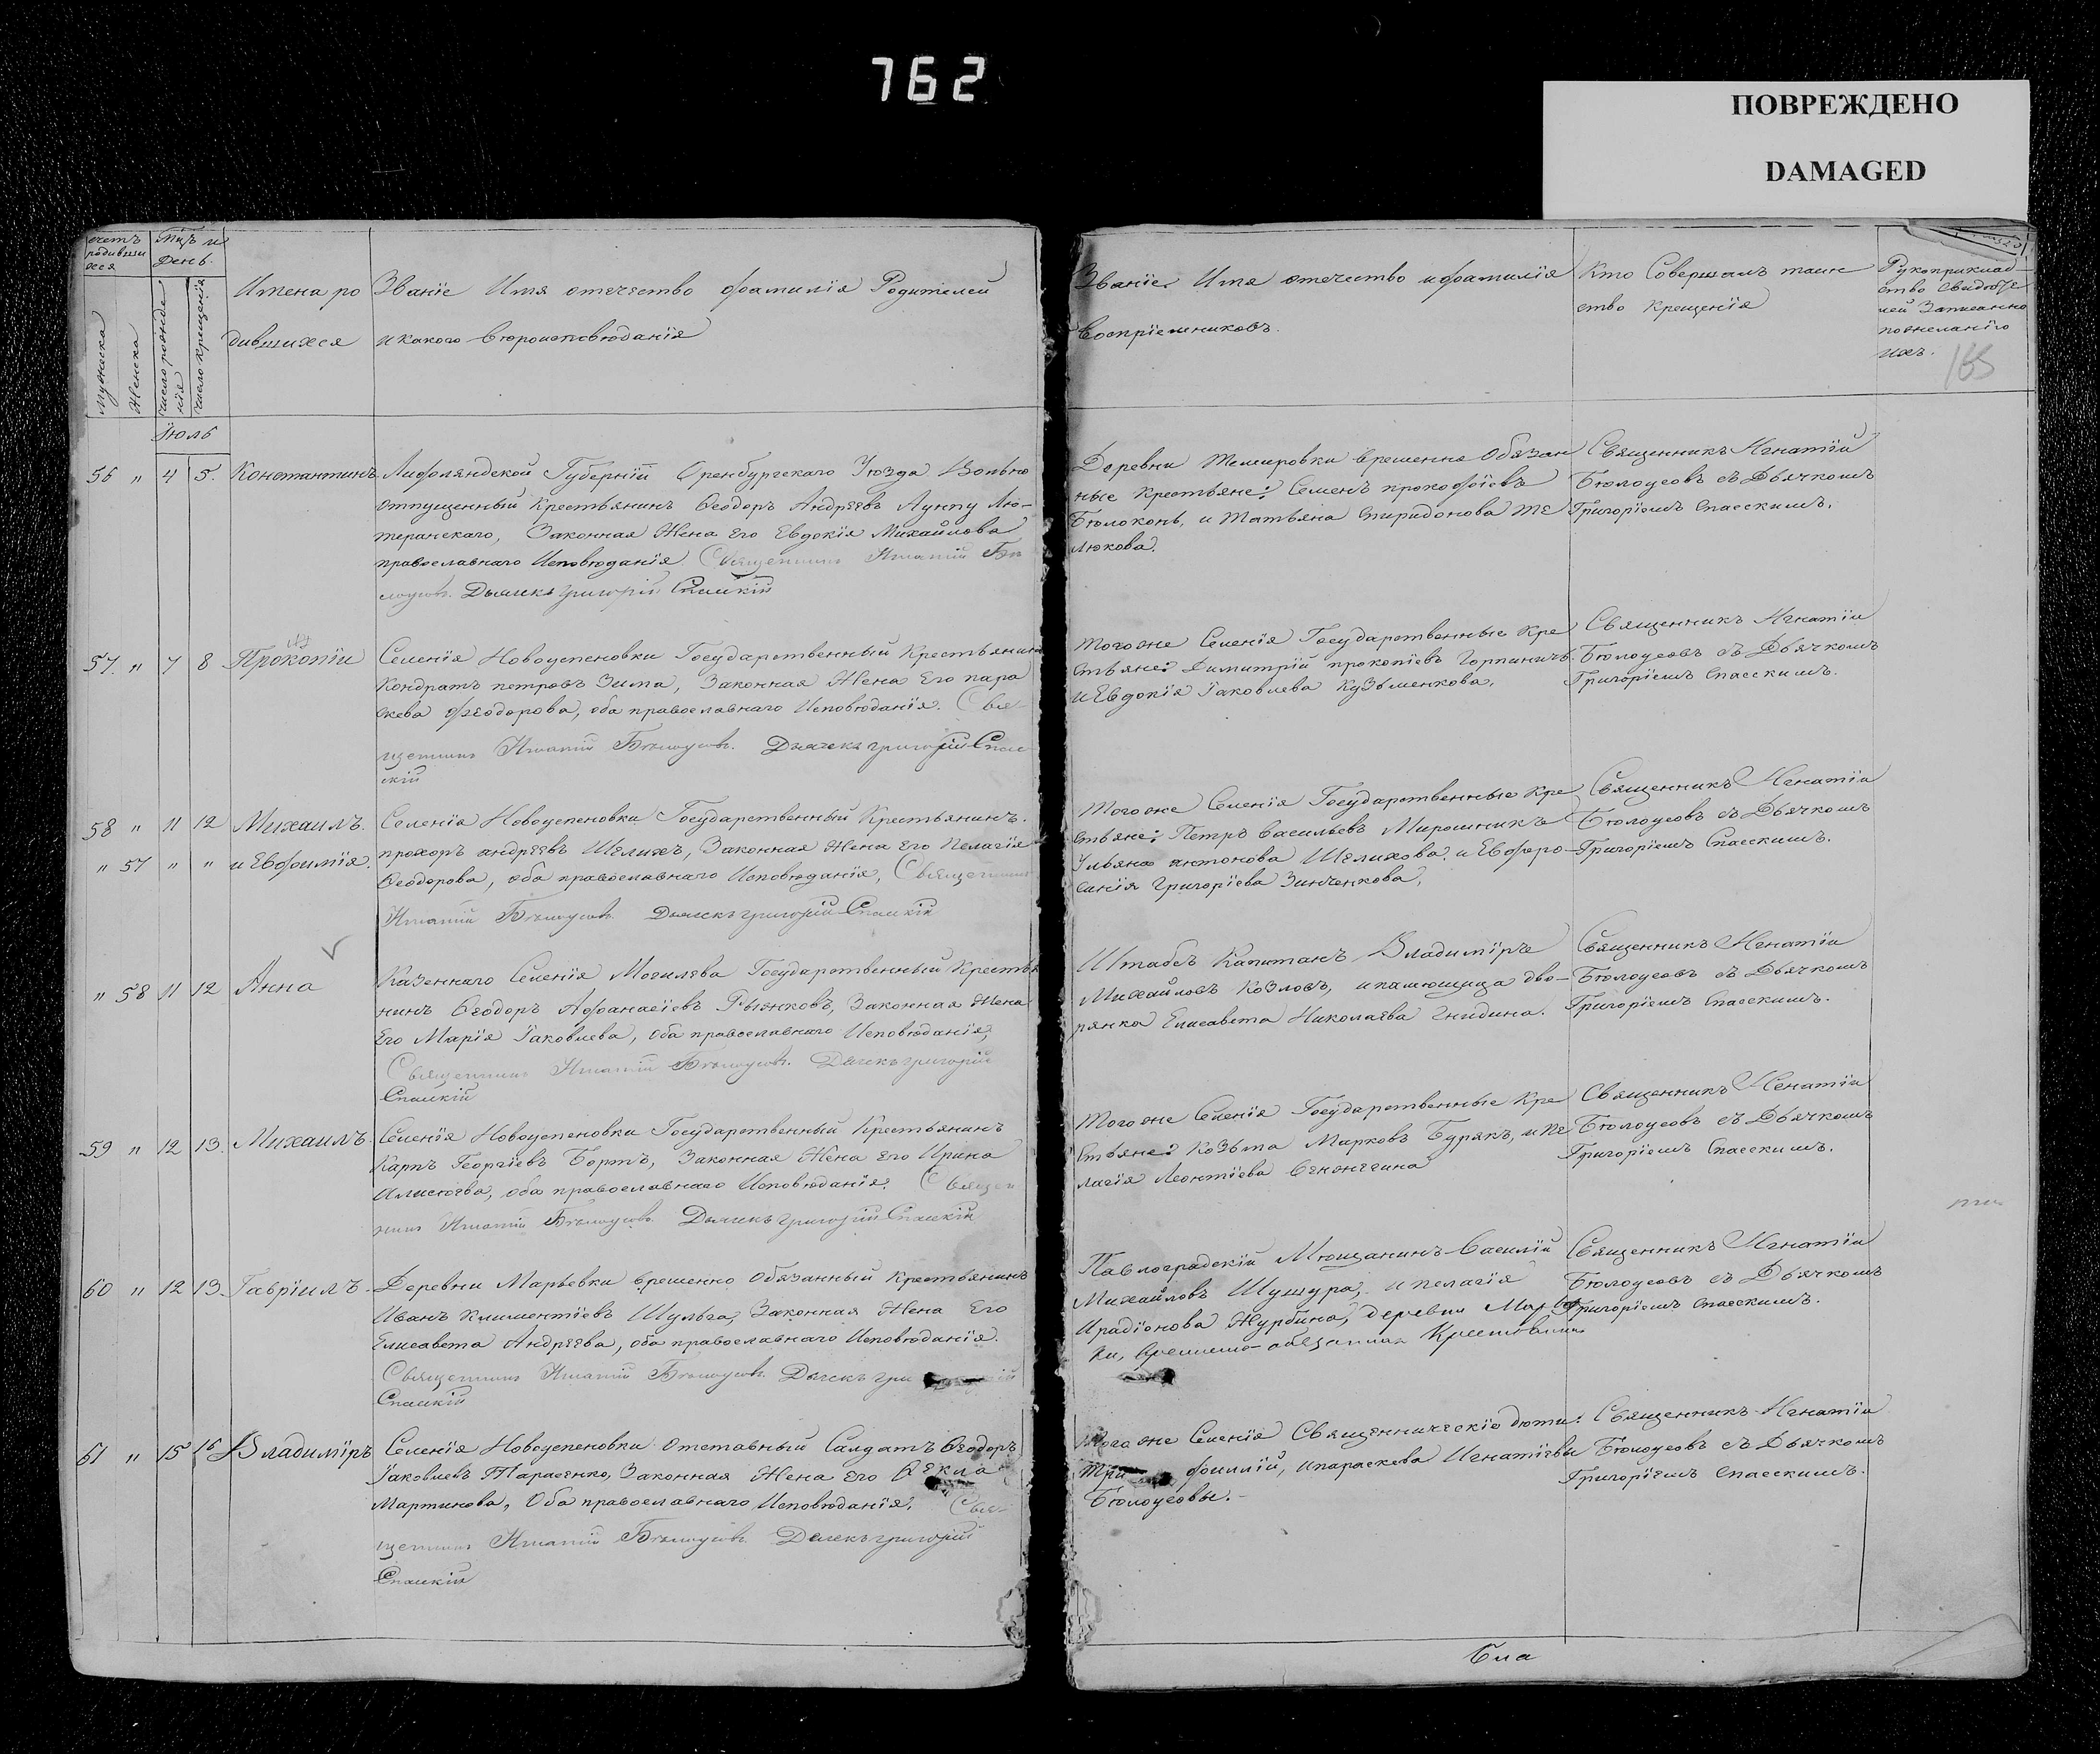 762
ПОВРЕЖДЕНО
DAMAGED
счетъ родивши хся
Мцъ и день.
Мужеска
Женска
число рожде нія
число крещенія
Имена ро
дившихся
Званіе Имя отечество фамилія Родителей
и какого вѣроисповѣданія
Званіе Имя отечество и фамилія
воспріемниковъ.
Кто Совершалъ таин
ство Крещенія
Рукоприклад
ство Свидѣте
лей Записанно
пожеланію
ихъ.
165
Іюль
56 " 4 5. Константинъ
Лифляндской Губерніи Оренбургскаго Уѣзда Вольно
отпущенный Крестьянинъ Ѳеодоръ Андрѣевъ Лунпу Лю-
теранскаго, Законная Жена Его Евдокія Михайлова
православнаго Исповѣданія Священникъ Игнатій Бѣ
лоусовъ. Дьячекъ Григорій Спасскій
Деревни Темировки временно Обязан
ные Крестьяне: Семенъ прокофіевъ
Бѣлоконь, и Татьяна Спиридонова Те
люкова.
Священникъ Игнатій
Бѣлоусовъ съ Дьячкомъ
Григоріемъ Спасскимъ.
57. " 7 8 Прокопій
Селенія Новоуспеновки Государственный Крестьянинъ
Кондратъ петровъ Зима, Законная Жена Его пара
скева Ѳеодорова, оба православнаго Исповѣданія. Свя-
щенникъ Игнатій Бѣлоусовъ. Дьячекъ Григорій Спас-
скій
Того же Селенія Государственные Кре
стьяне: Димитрій прокопіевъ Горпиничъ
и Евдокія Іаковлева Кузьменкова.
Священникъ Игнатій
Бѣлоусовъ съ Дьячкомъ
Григоріемъ Спасскимъ.
58 " 11 12 Михаилъ.
" 57 " " и Евфимія.
Селенія Новоуспеновки Государственный Крестьянинъ.
прохоръ андрѣевъ Шелихъ, Законная Жена Его Пелагія
Ѳеодорова, оба православнаго Исповѣданія, Священникъ
Игнатій Бѣлоусовъ. Дьячекъ Григорій Спасскій
Того же Селенія Государственные Кре
стьяне: Петръ Васильевъ Мирошникъ
Ульяна антонова Шелихова. и Евфро-
синія Григоріева Зинченкова,
Священникъ Игнатій
Бѣлоусовъ съ Дьячкомъ
Григоріемъ Спасскимъ.
" 58 11 12 Анна
Казеннаго Селенія Могилева Государственный Крестья
нинъ Ѳеодоръ Афанасіевъ Рыжковъ, Законная Жена
Его Марія Іаковлева, оба православнаго Исповѣданія,
Священникъ Игнатій Бѣлоусовъ. Дьячекъ Григорій
Спасскій
Штабсъ Капитанъ Владиміръ
Михайловъ Козловъ, и помощица дво-
рянка Елисавета Николаева Гнидина.
Священникъ Игнатій
Бѣлоусовъ съ Дьячкомъ
Григоріемъ Спасскимъ.
59 " 12 13. Михаилъ
Селенія Новоуспеновки Государственный Крестьянинъ
Карпъ Георгіевъ Бортъ, Законная Жена Его Ирина
Алисѣева, оба православнаго Исповѣданія. Священ
никъ Игнатій Бѣлоусовъ. Дьячекъ Григорій Спасскій
Того же Селенія Государственные Кре
стьяне: Козьма Марковъ Бурякъ, и Пе
лагія Леонтіева
Священникъ Игнатій
Бѣлоусовъ съ Дьячкомъ
Григоріемъ Спасскимъ.
60 " 12 13 Гавріилъ
Деревни Марьевки временно Обязанный Крестьянинъ
Иванъ Климентіевъ Шульга, Законная Жена Его
Елисавета Андрѣева, оба православнаго Исповѣданія.
Священникъ Игнатій Бѣлоусовъ. Дьячекъ Гри
Спасскій
Павлоградскій Мѣщанинъ Василій
Михайловъ Шушура, и пелагія
Ирадіонова Журбина, деревни Марьев
ки, временно-обязанная Крестьянка
Священникъ Игнатій
Бѣлоусовъ съ Дьячкомъ
Григоріемъ Спасскимъ.
61 " 15 16 Владиміръ
Селенія Новоуспеновки Отставный Салдатъ Ѳеодоръ
Іаковлевъ Тарасенко, Законная Жена Его Ѳекла
Мартинова, Оба православнаго Исповѣданія. Свя-
щенникъ Игнатій Бѣлоусовъ Дьячекъ Григорій
Спасскій
Того же Селенія Священническіе дѣти:
Три филлій, и параскева Игнатіевы
Бѣлоусовы.-
Священникъ Игнатій
Бѣлоусовъ съ Дьячкомъ
Григоріемъ Спасскимъ.